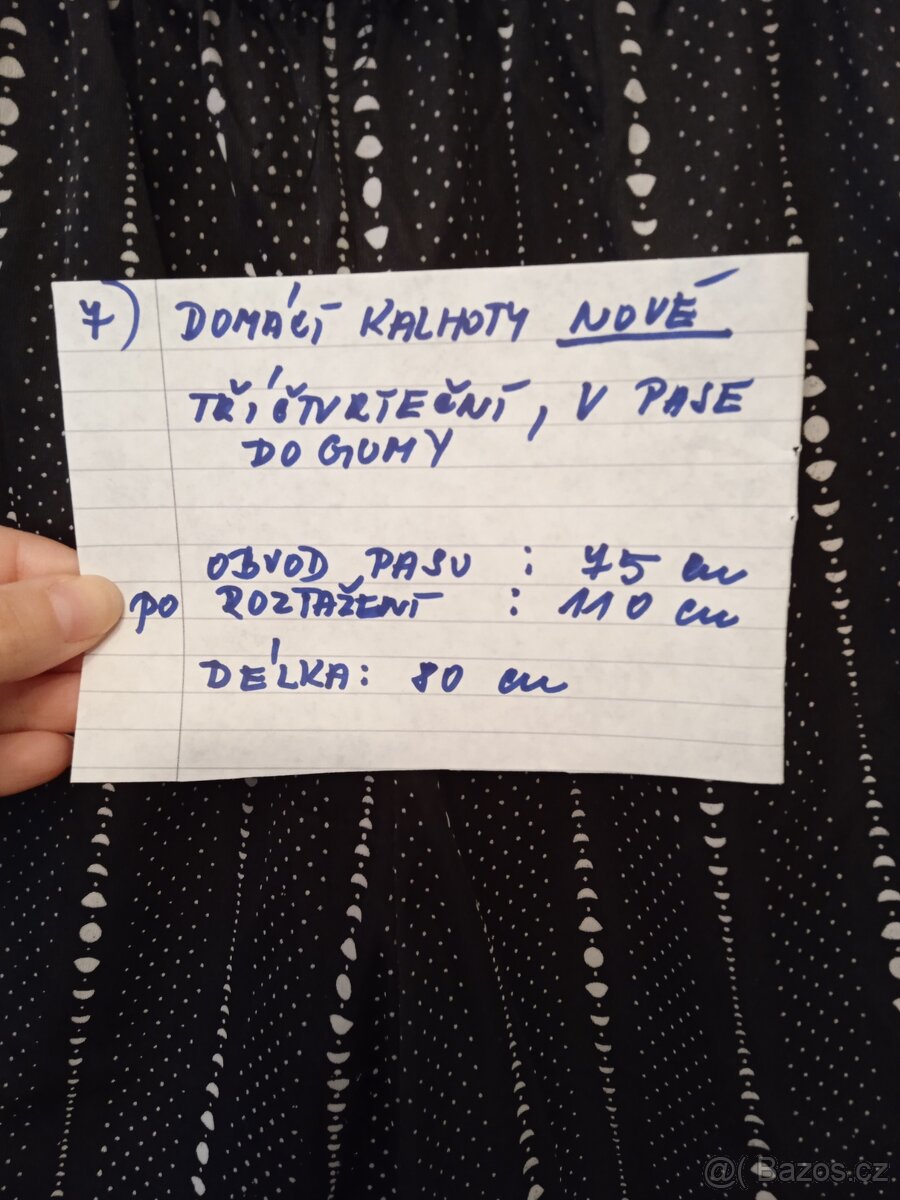 7) DOMÁCÍ KALHOTY NOVÉ
TŘÍČTVRTEČNÍ, V PASE
DO GUMY
OBVOD PASU : 75 cm
po ROZTAŽENÍ : 110 cm
DÉLKA: 80 cm
@( Bazos.cz